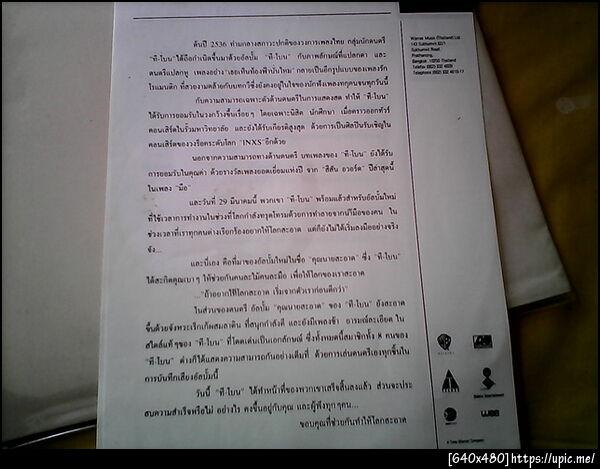 ต้นปี 2536 ท่ามกลางสภาวะปกติของวงการเพลงไทย กลุ่มนักดนตรี
"ที-โบน" ได้ถือกำเนิดขึ้นมาด้วยอัลบั้ม "ที-โบน" กับภาพลักษณ์ที่แปลกตา และ
ดนตรีแปลกหู เพลงอย่าง "เธอเห็นท้องฟ้านั่นไหม" กลายเป็นอีกรูปแบบของเพลงรัก
โรแมนติก ที่สวยงามคล้ายกับบทกวีซึ่งยังคงอยู่ในใจของนักฟังเพลงทุกคนจนทุกวันนี้
กับความสามารถเฉพาะตัวด้านดนตรีในการแสดงสด ทำให้ "ที-โบน"
ได้รับการยอมรับในวงกว้างขึ้นเรื่อยๆ โดยเฉพาะนิสิต นักศึกษา เมื่อคราวออกทัวร์
คอนเสิร์ตในรั้วมหาวิทยาลัย และยังได้รับเกียรติสูงสุด ด้วยการเป็นศิลปินรับเชิญใน
คอนเสิร์ตของวงร็อคระดับโลก "INXS" อีกด้วย
นอกจากความสามารถทางด้านดนตรี บทเพลงของ "ที-โบน" ยังได้รับ
การยอมรับในคุณค่า ด้วยรางวัลเพลงยอดเยี่ยมแห่งปี จาก "สีสัน อวอร์ด" ปีล่าสุดนี้
ในเพลง "มือ"
และวันที่ 29 มีนาคมนี้ พวกเขา "ที-โบน" พร้อมแล้วสำหรับอัลบั้มใหม่
ที่ใช้เวลาการทำงานในช่วงที่โลกกำลังทรุดโทรมด้วยการทำลายจากน้ำมือของคน ใน
ช่วงเวลาที่เราทุกคนต่างเรียกร้องอยากให้โลกสะอาด แต่ก็ยังไม่ได้เริ่มลงมืออย่างจริง
จัง...
และนี่เอง คือที่มาของอัลบั้มใหม่ในชื่อ "คุณนายสะอาด" ซึ่ง "ที-โบน"
ได้สะกิดคุณเบาๆ ให้ช่วยกันคนละไม้คนละมือ เพื่อให้โลกของเราสะอาด
..."ถ้าอยากให้โลกสะอาด เริ่มจากตัวเราก่อนดีกว่า"
ในส่วนของดนตรี อัลบั้ม "คุณนายสะอาด" ของ "ที-โบน" ยังสะอาด
ขึ้นด้วยจังหวะเร็กเก้ผสมลาติน ที่สนุกกำลังดี และยังมีเพลงช้า อารมณ์ละเอียด ใน
สไตล์แท้ๆของ "ที-โบน" ที่โดดเด่นเป็นเอกลักษณ์ ซึ่งทั้งหมดนี้สมาชิกทั้ง 8 คนของ
"ที-โบน" ต่างก็ได้แสดงความสามารถกันอย่างเต็มที่ ด้วยการเล่นดนตรีเองทุกชิ้นใน
การบันทึกเสียงอัลบั้มนี้
วันนี้ "ที-โบน" ได้ทำหน้าที่ของพวกเขาเสร็จสิ้นลงแล้ว ส่วนจะประ
สบความสำเร็จหรือไม่ อย่างไร คงขึ้นอยู่กับคุณ และผู้ฟังทุกๆคน...
ขอบคุณที่ช่วยกันทำให้โลกสะอาด
Warner Music (Thailand) Ltd
Sukhumvit Road
Prakhanong,
Bangkok 10250 Thailand
A Time Warner Company
[640x480]https://upic.me/